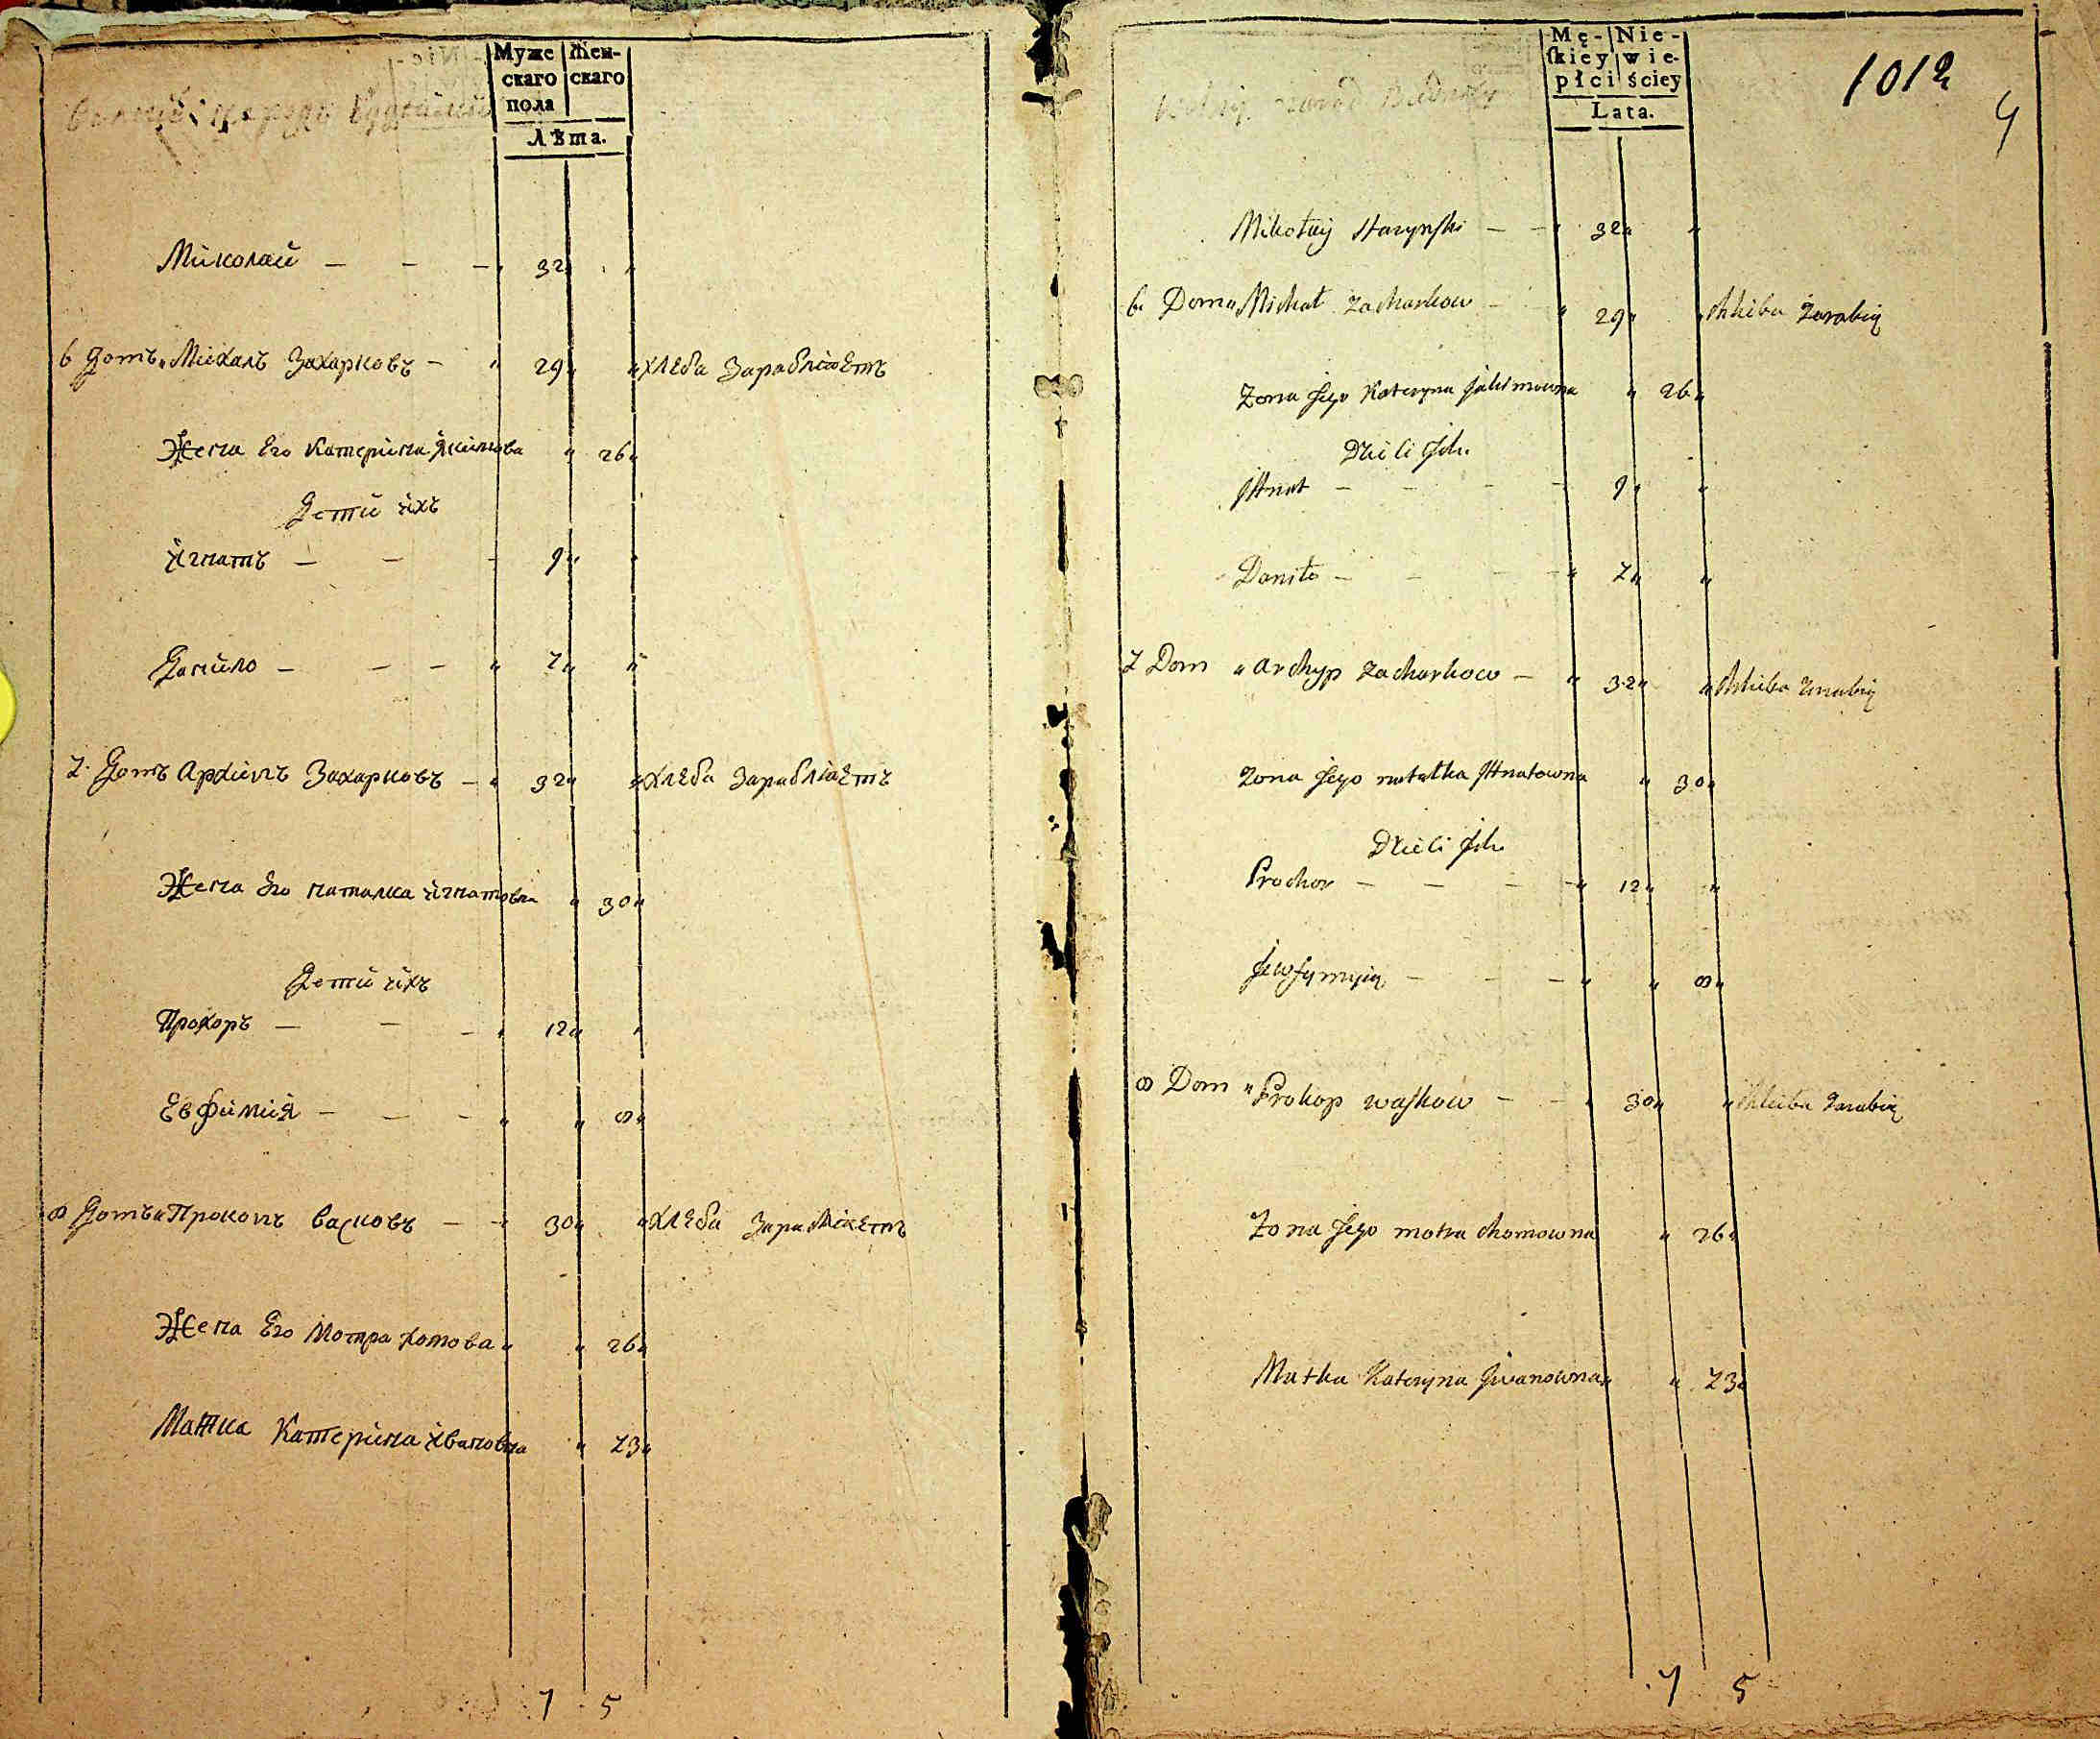 Муже
скаго
пола
Жен-
скаго
Лѣта.
Миколай — — — 32
6 Домъ Михалъ Захарковъ — 29 хлеба Зарабляетъ
Жена Его Катерина Якимова 26
Дети ихъ
Игнатъ — — — 9
Данило — — — 7
7 Домъ Архипъ Захарковъ — 32 хлеба Зарабляетъ
Жена Его наталка Игнатовна 30
Дети ихъ
Прохоръ — — — 12
Евфимия — — — 8
8 Домъ Прокопъ Васковъ — — 30 хлеба Зарабляетъ
Жена Его Мотра хомова 26
Матка Катерина Ивановна 73
7 5
Mę-
skiey
płci
Nie-
wie-
ściey
Lata.
1012
4
Mikołaij — — 32
6 Dom Michał Zacharkow — 29 Chliba Zarabią
Zona Jego Kateryna Jakimowna 26
Dzieci Ich
Ihnat — — — 9
Daniło — — — 7
7 Dom Archyp Zacharkow — 32 Chliba Zarabią
Zona Jego natałka Ihnatowna 30
Dzieci Ich
Prochor — — — 12
Jewfymyia — — — 8
8 Dom Prokop Waskow — — 30 Chliba Zarabią
Zona Jego motra Chomowna 26
Matka Kateryna Iwanowna 73
7 5